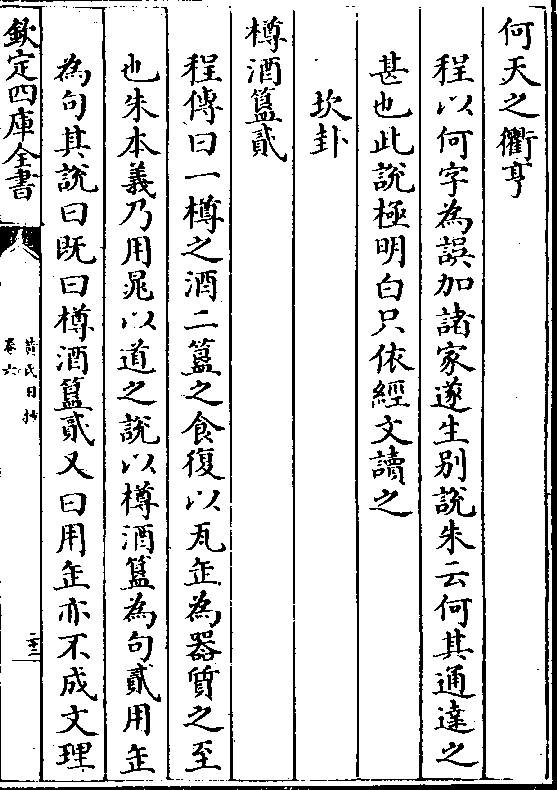 何天之衢亨
程以何字為誤加諸家遂生别說朱云何其通達之
甚也此說極明白只依經文讀之
坎卦
樽酒簋貳
程傳曰一樽之酒二簋之食復以瓦缶為器質之至
也朱本義乃用晁以道之說以樽酒簋為句貳用缶
為句其說曰既曰樽酒簋貳又曰用缶亦不成文理
欽定四庫全書
黄氏日抄
卷六
二十三